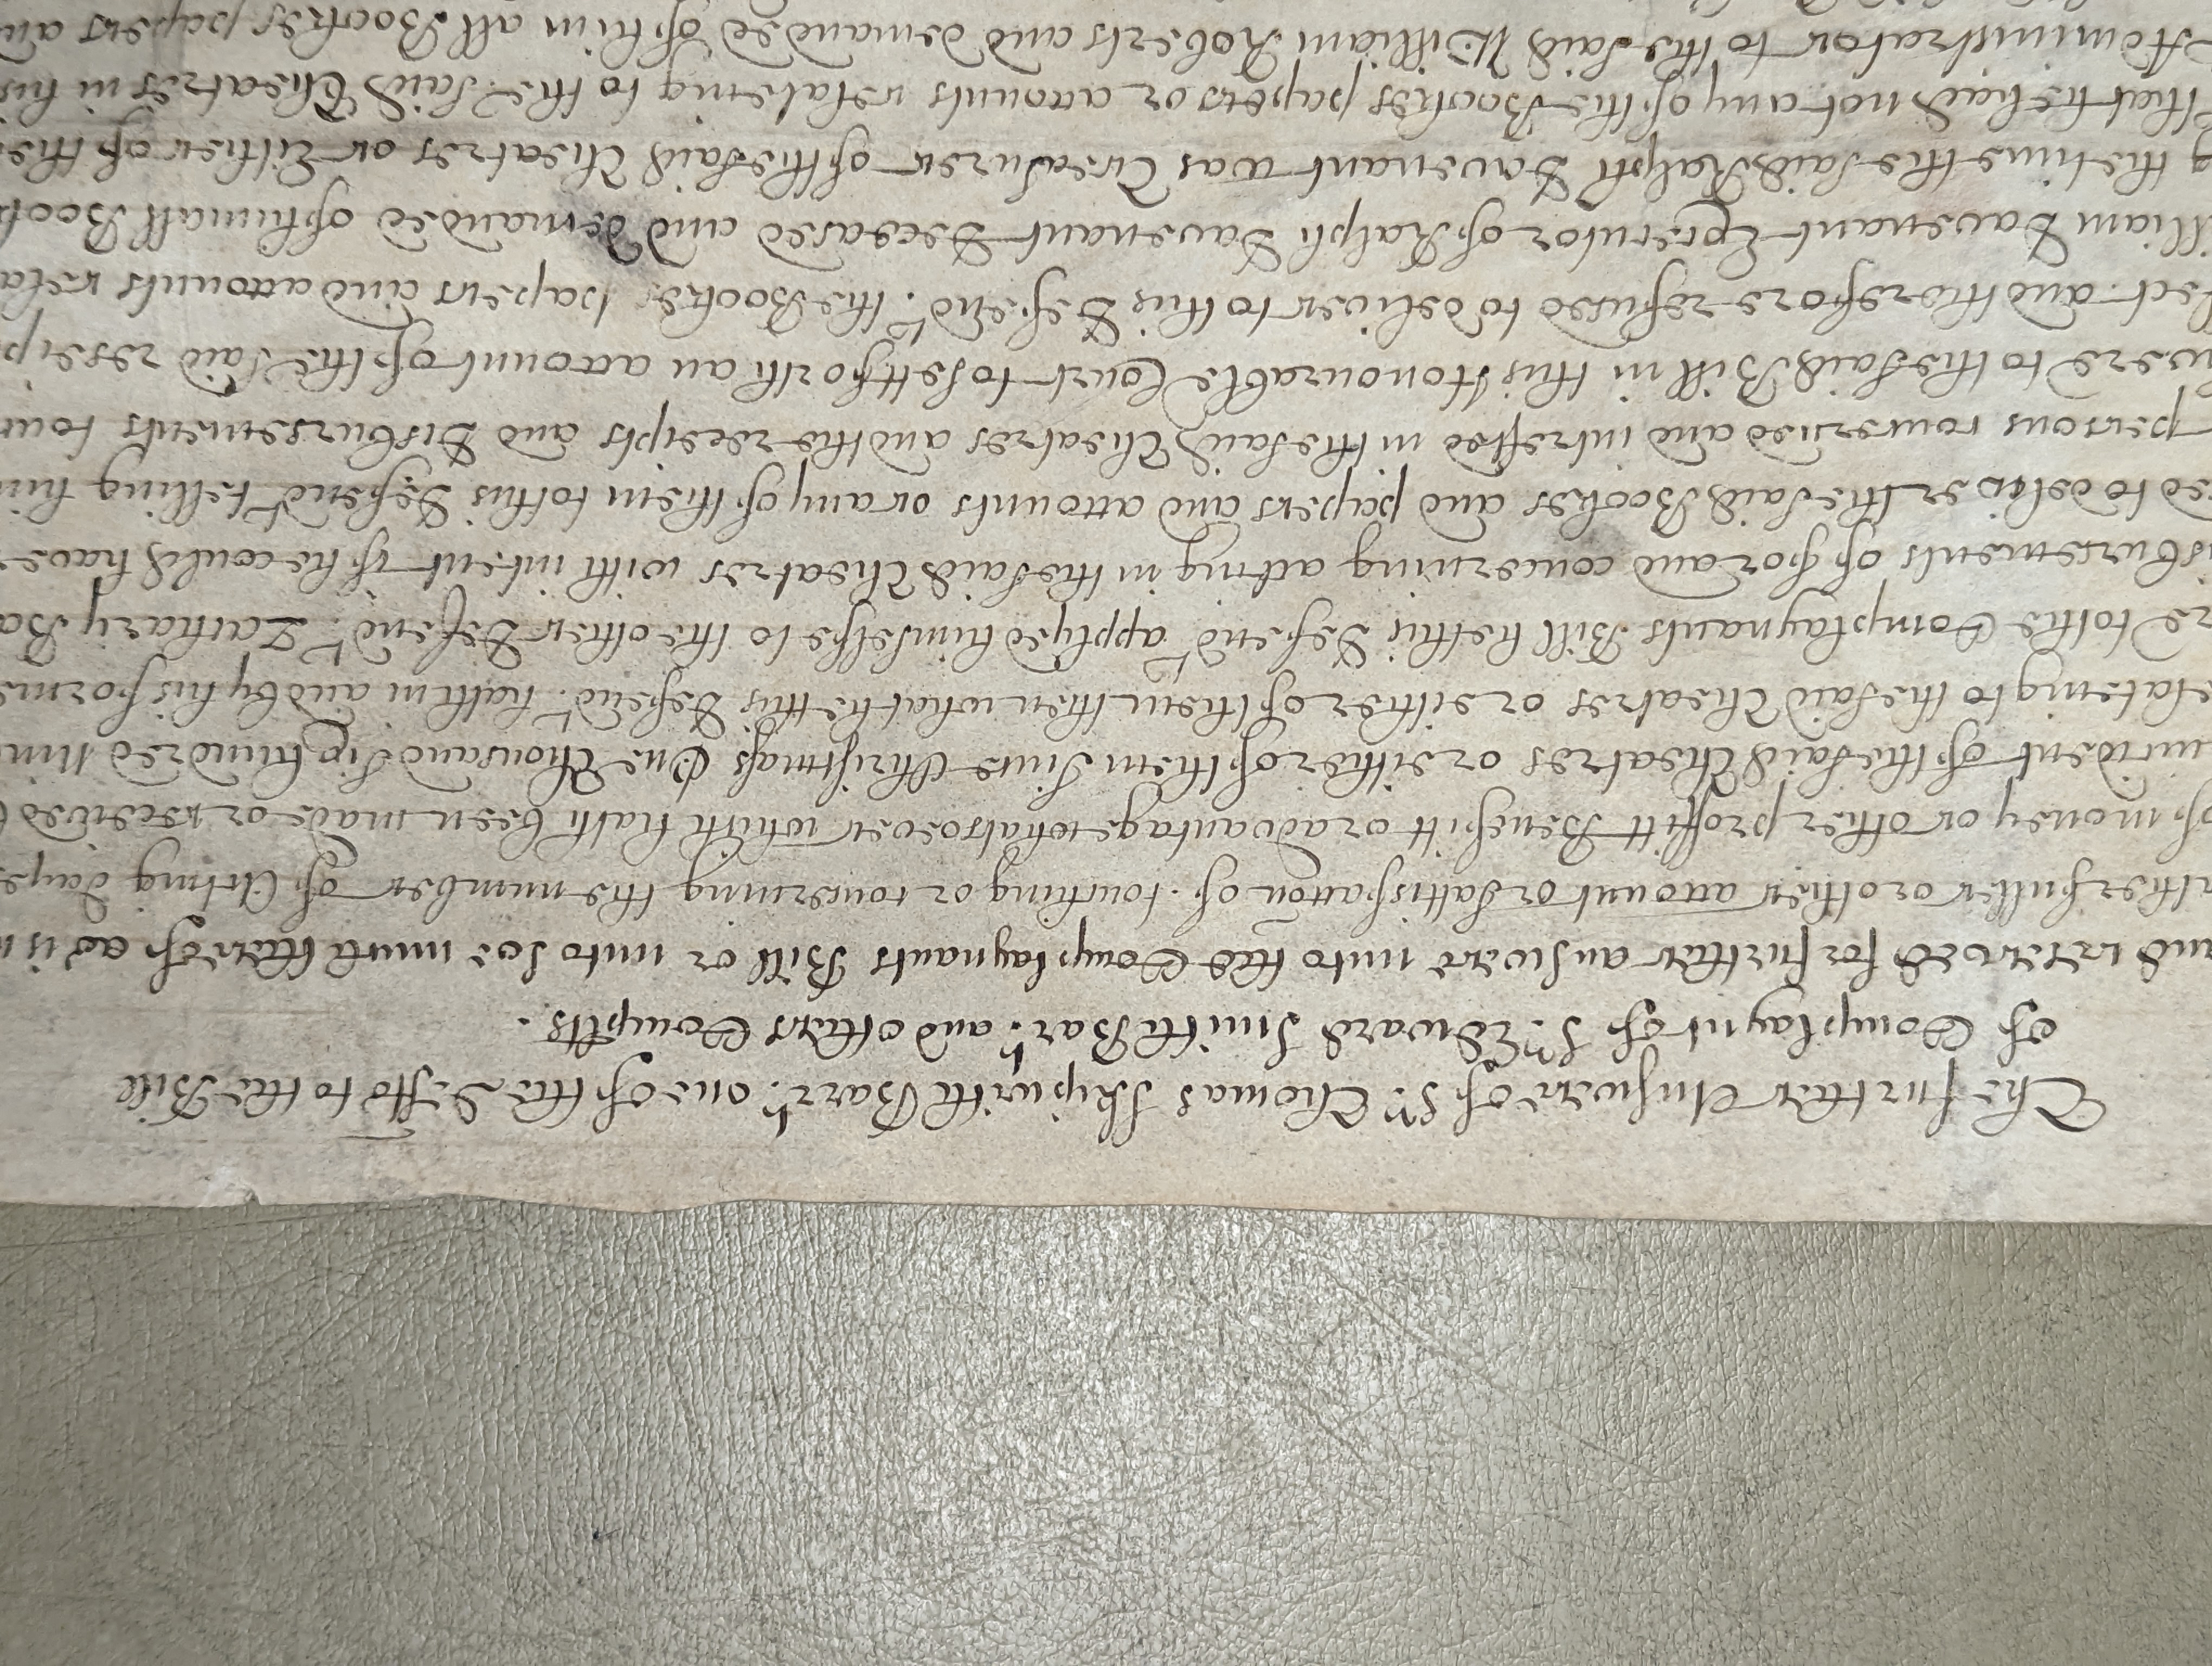 The further Answere of Sr. Thomas Skipwith Barrt. one of the Defts to the Bill
of Complaynt of Sr. Edward Smith Bart. and others Complts.
and reserved for further answere unto the Complaynants Bill or unto soe much thereof as is
further fuller or other account or sattisfaccon of touching or concerning the number of Acting dayes
of money or other proffitt Benefitt or advantage whatsoever which hath been made or received
incident of the said Theatres or either of them since Christmass One Thousand Six hundred
relateing to the said Theatres or either of them then what he this Defendt. hath in and by his forme
to the Complaynants Bill he this Defendt. applyed himselfe to the other Defendt. Zachary
disbursements of for and concerning acting in the said Theatres with intent if he could have
to deliver the said Bookes and papers and accounts or any of them to this Defendt. telling him
persons concerned and intrested in the said Theatres and the receipts and Disbursements
to the said Bill in this Honourable Court to sett forth an account of the said
and therefore refused to deliver to this Defendt. the Bookes papers and accounts
William Davenant Executor of Ralph Davenant Deceased and demanded of him all
the time the said Ralph Davenant was Treasurer of the said Theatres or Either of
that he had not any of the Bookes papers or accounts relateing to the said Theatres in his
Administrator to the said William Roberts and demanded of him all Bookes papers